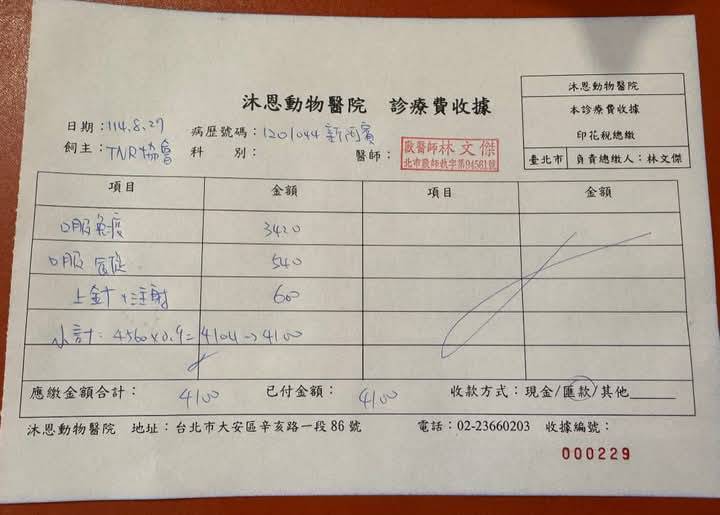 沐恩動物醫院　診療費收據
沐恩動物醫院
本診療費收據
印花稅總繳
臺北市 負責總繳人：林文傑
日期：114.8.27 病歷號碼：1201044 新兩賓
飼主：TNR協會 科　別： 醫師： 獸醫師林文傑
北市獸師執字第94581號
項目 金額 項目 金額
口服免疫 3420
口服 540
上針+注射 600
小計：4560×0.9=4104→4100
應繳金額合計：4100 已付金額：4100 收款方式：現金/匯款/其他
沐恩動物醫院 地址：台北市大安區辛亥路一段86號 電話：02-23660203 收據編號：
000229